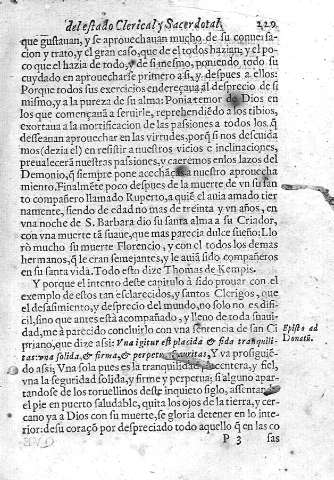 del estado Clerical y Sacerdotal. 229
que gustauan, y se aprouechauan mucho de su conuersa-
cion y trato, y el gran caso, que de el todos hazian: y el po-
co que el hazia de todo, y de si mesmo, poniendo todo su
cuydado en aprouecharse primero a si, y despues a ellos:
Porque todos sus exercicios endereçaua al desprecio de si
mismo, y a la pureza de su alma: Ponia temor de Dios en
los que començauã a seruirle, reprehendiẽdo a los tibios,
exortaua a la mortificacion de las passiones a todos los q̃
desseauan aprouechar en las virtudes, porq̃ si nos descuida
mos (dezia el) en resistir a nuestros vicios e inclinaciones,
preualecerã nuestras passiones, y caeremos en los lazos del
Demonio, q̃ siempre pone acechãças a nuestro aprouecha
miento. Finalmẽte poco despues de la muerte de vn su san
to compañero llamado Ruperto, a quiẽ el auia amado tier
namente, siendo de edad no mas de treinta y vn años, en
vna noche de S. Barbara dio su santa alma a su Criador,
con vna muerte tã suaue, que mas parecia dulce sueño: Llo
rò mucho su muerte Florencio, y con el todos los demas
hermanos, q̃ le eran semejantes, y le auiã sido compañeros
en su santa vida. Todo esto dize Thomas de Kempis.
Y porque el intento deste capitulo à sido prouar con el
exemplo de estos tan esclarecidos, y santos Clerigos, que
el desasimiento, y desprecio del mundo, no solo no es difi-
cil, sino que antes està acompañado, y lleno de toda suaui-
dad, me à parecido concluirlo con vna sentencia de san Ci
priano, que dize assi: Vna igitur est placida & fida tranquili-
tas: vna solida, & firma, & perpetua securitas, Y va prosiguiẽ-
do assi; Vna sola pues es la tranquilidad placentera, y fiel,
vna la seguridad solida, y firme y perpetua; si alguno apar-
tandose de los toruellinos deste inquieto siglo, assentando
el pie en puerto saludable, quita los ojos de la tierra, y cer-
cano ya a Dios con su muerte, se gloria detener en lo inte-
rior: de su coraçõ por despreciado todo aquello q̃ en las co
P 3 sas
Epist. ad
Donatũ.